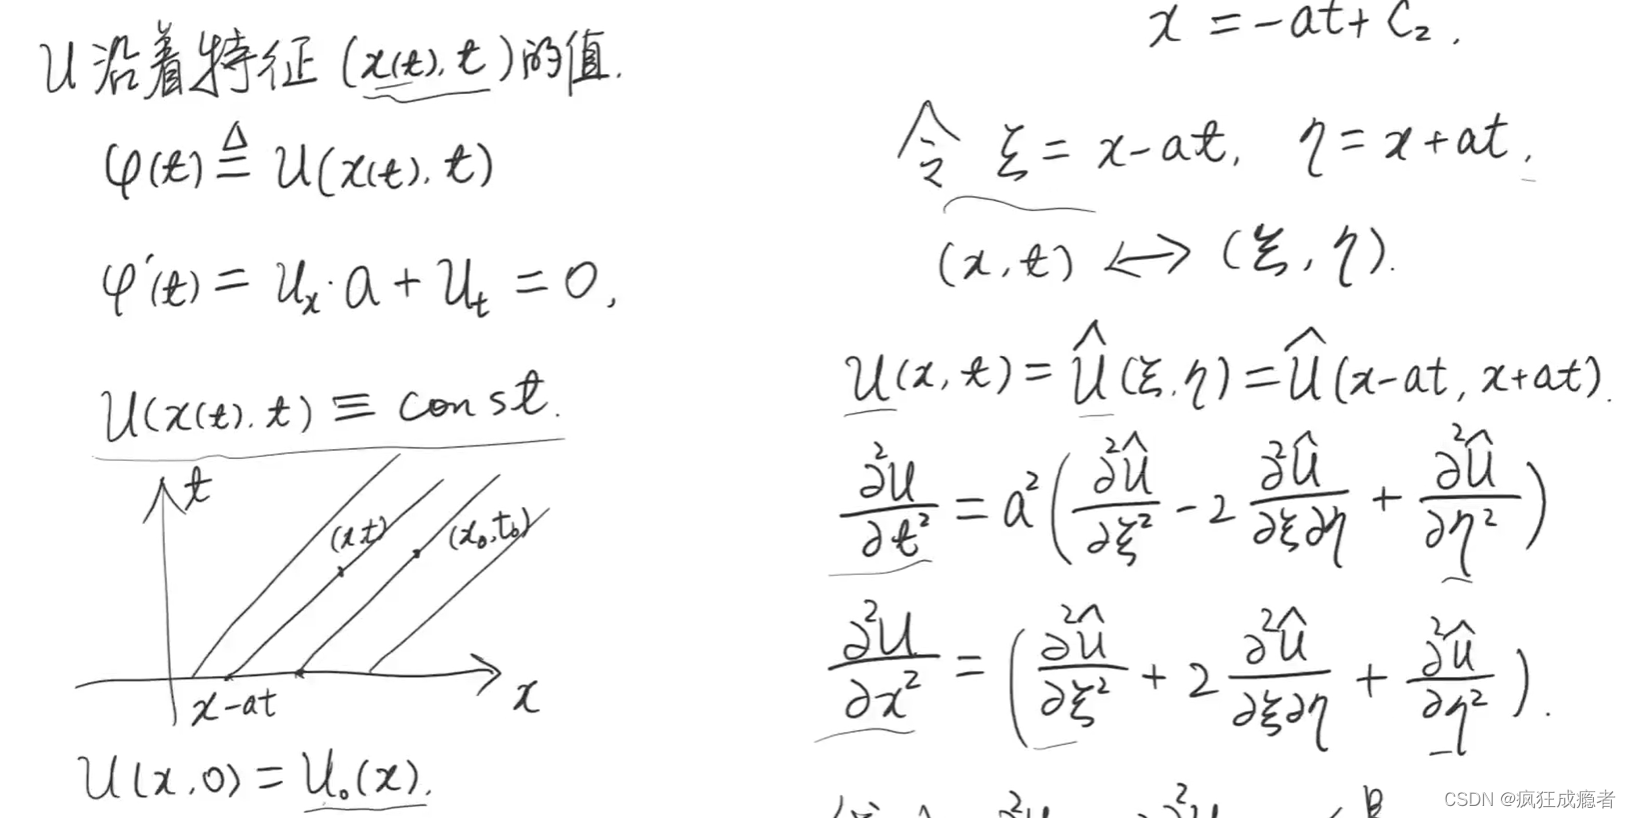 U沿着特征(x(t), t)的值.
φ(t) ≜ U(x(t), t)
φ'(t) = Uₓ·a + Uₜ = 0,
U(x(t), t) ≡ const.
t
(x t)
(x₀, t₀)
x-at
x
U(x, 0) = U₀(x).
x = -at + C₂.
令 ξ = x-at, η = x+at,
(x, t) ↔ (ξ, η).
U(x, t) = Û(ξ, η) = Û(x-at, x+at).
∂²U/∂t² = a²(∂²Û/∂ξ² - 2 ∂²Û/∂ξ∂η + ∂²Û/∂η²)
∂²U/∂x² = (∂²Û/∂ξ² + 2 ∂²Û/∂ξ∂η + ∂²Û/∂η²).
CSDN @疯狂成瘾者